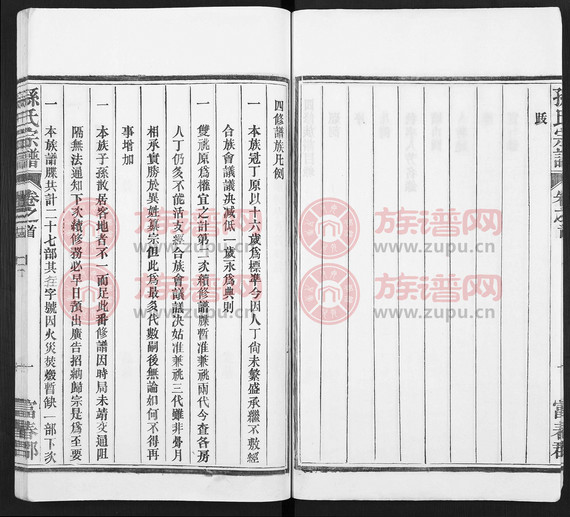 孫氏宗譜
跋
孫氏宗譜
卷之首
富春郡
四修譜族凡例
一 本族冠丁原以十六歲爲標準今因人丁尙未繁盛承繼不敷經
合族會議議決減低一歲永爲典則
一 雙祧原爲權宜之計第二次續修譜牒暫准兼祧兩代今查各房
人丁仍多不能活支經合族會議議決始准兼祧三代雖非骨月
相承實勝於異姓亂宗但此爲最多代數嗣後無論如何不得再
事增加
一 本族子孫散居客地者不一而足此番修譜因時局未靖交通阻
隔無法通知下次續修務必早日預出廣告招納歸宗是爲至要
一 本族譜牒共計二十七部其字號因火災焚燬暫缺一部下次
卷之首
富春郡
族谱网
www.zupu.cn
族谱网
www.zupu.cn
族谱网
www.zupu.cn
族谱网
www.zupu.cn